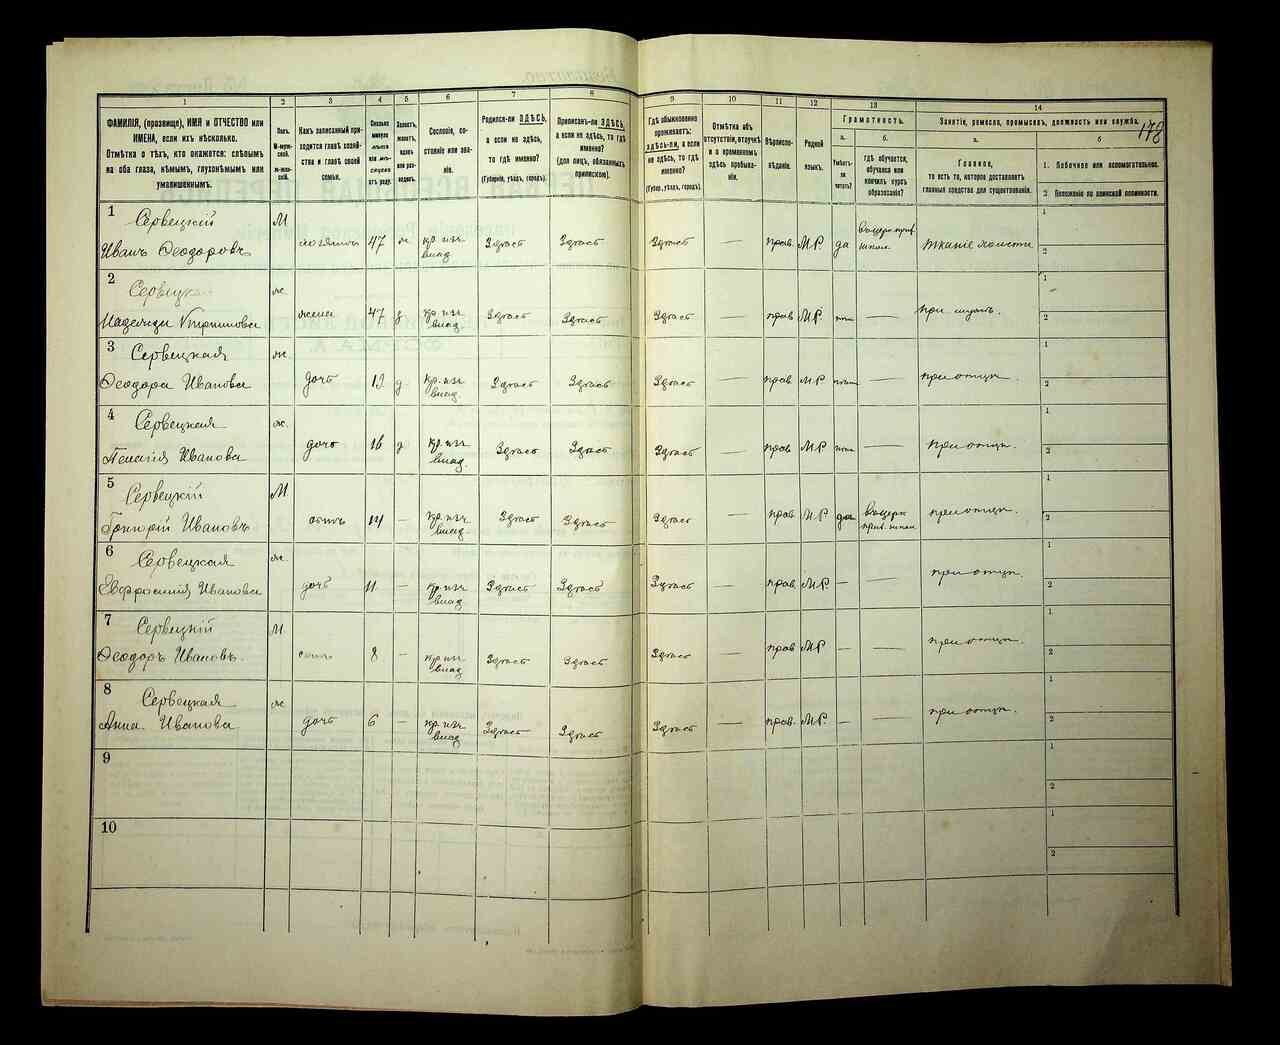 178
1
2
3
4
5
6
7
8
9
10
11
12
13
14
ФАМИЛІЯ, (прозвище), ИМЯ и ОТЧЕСТВО или
ИМЕНА, если ихъ нѣсколько.
Отмѣтка о тѣхъ, кто окажется: слѣпымъ
на оба глаза, нѣмымъ, глухонѣмымъ или
умалишеннымъ.
Полъ.
М-мужской.
Ж-женскій.
Какъ записанный при-
ходится главѣ хозяй-
ства и главѣ своей
семьи.
Сколько
минуло
лѣтъ
или мѣ-
сяцевъ
отъ роду.
Холостъ,
женатъ,
вдовъ
или раз-
веденъ.
Сословіе, со-
стояніе или зва-
ніе.
Родился-ли ЗДѢСЬ,
а если не здѣсь,
то гдѣ именно?
(Губернія, уѣздъ, городъ).
Приписанъ-ли ЗДѢСЬ,
а если не здѣсь, то гдѣ
именно?
(для лицъ, обязанныхъ
припискою).
Гдѣ обыкновенно
проживаетъ:
ЗДѢСЬ-ли, а если
не здѣсь, то гдѣ
именно?
(Губер., уѣздъ, городъ).
Отмѣтка объ
отсутствіи, отлучкѣ
и о временномъ
здѣсь пребыва-
ніи.
Вѣроиспо-
вѣданіе.
Родной
языкъ.
Грамотность.
а.
Умѣетъ-
ли
читать?
б.
гдѣ обучается,
обучался или
кончилъ курсъ
образованія?
Занятіе, ремесло, промыселъ, должность или служба.
а.
Главное,
то есть то, которое доставляетъ
главныя средства для существованія.
б
1. Побочное или вспомогательное.
2. Положеніе по воинской повинности.
1
Сервецкій М
Иванъ Ѳеодоровъ хозяинъ 47 ж кр. изъ влад. Здѣсь Здѣсь Здѣсь — прав М.Р. да школ. тканіе холста
1
2
2
ж.
жена 47 кр изъ влад. Здѣсь Здѣсь Здѣсь — прав М.Р. — при мужѣ.
1
2
3
Сервецкая ж.
Ѳеодора Иванова дочь 19 д кр. изъ влад. Здѣсь Здѣсь Здѣсь — прав М.Р — при отцѣ.
1
2
4
Сервецкая ж.
Пелагія Иванова дочь 16 д кр. изъ влад. Здѣсь Здѣсь Здѣсь — прав М.Р — при отцѣ.
1
2
5
Сервецкій М
Григорій Ивановъ сынъ 14 — кр. изъ влад. Здѣсь Здѣсь Здѣсь — прав М.Р да при отцѣ.
1
2
6
Сервецкая ж.
Евфросинія Иванова дочь 11 — кр. изъ влад. Здѣсь Здѣсь Здѣсь — прав М.Р — при отцѣ.
1
2
7
Сервецкій М.
Ѳеодоръ Ивановъ. сынъ 8 — кр. изъ влад Здѣсь Здѣсь Здѣсь — прав М.Р — — при отцѣ.
1
2
8
Сервецкая ж
Анна Иванова дочь 6 — кр. изъ влад. Здѣсь Здѣсь Здѣсь — прав. М.Р. — — при отцѣ.
1
2
9
1
2
10
1
2